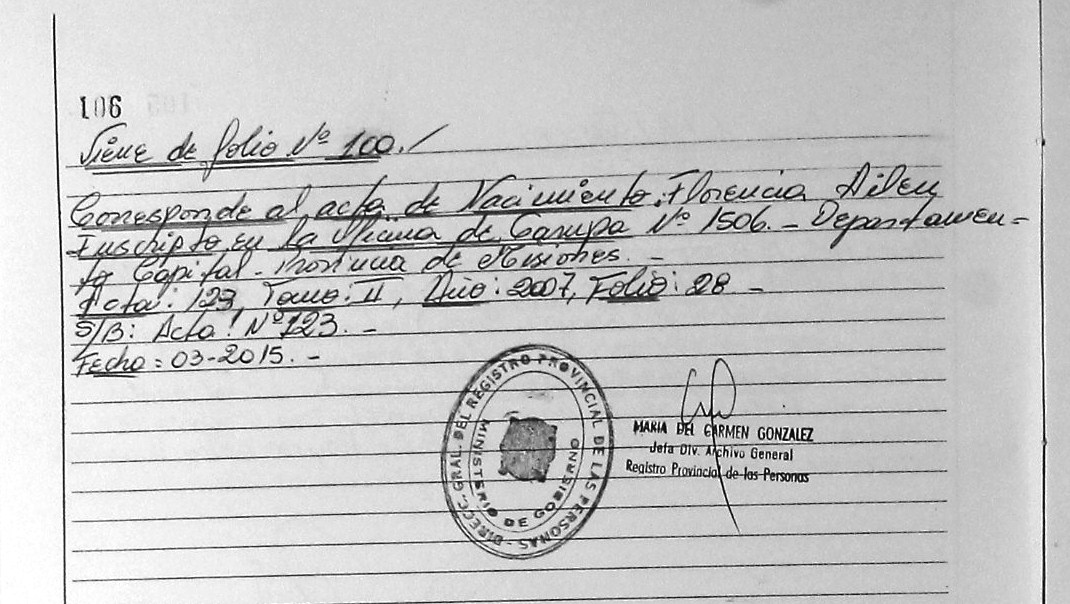 106
Viene de folio Nº 100./
Corresponde al acta de Nacimiento. Florencia Ailen
Inscripto en la Oficina de Garupa Nº 1506. - Departamen=
to Capital - Provincia de Misiones. -
Acta: 123, Tomo: II, Año: 2007, Folio: 28 -
S/B: Acta: Nº 123. -
Fecha: 03-2015. -
DIRECC. GRAL. DEL REGISTRO PROVINCIAL DE LAS PERSONAS -
MINISTERIO DE GOBIERNO
MARIA DEL CARMEN GONZALEZ
Jefa Div. Archivo General
Registro Provincial de las Personas